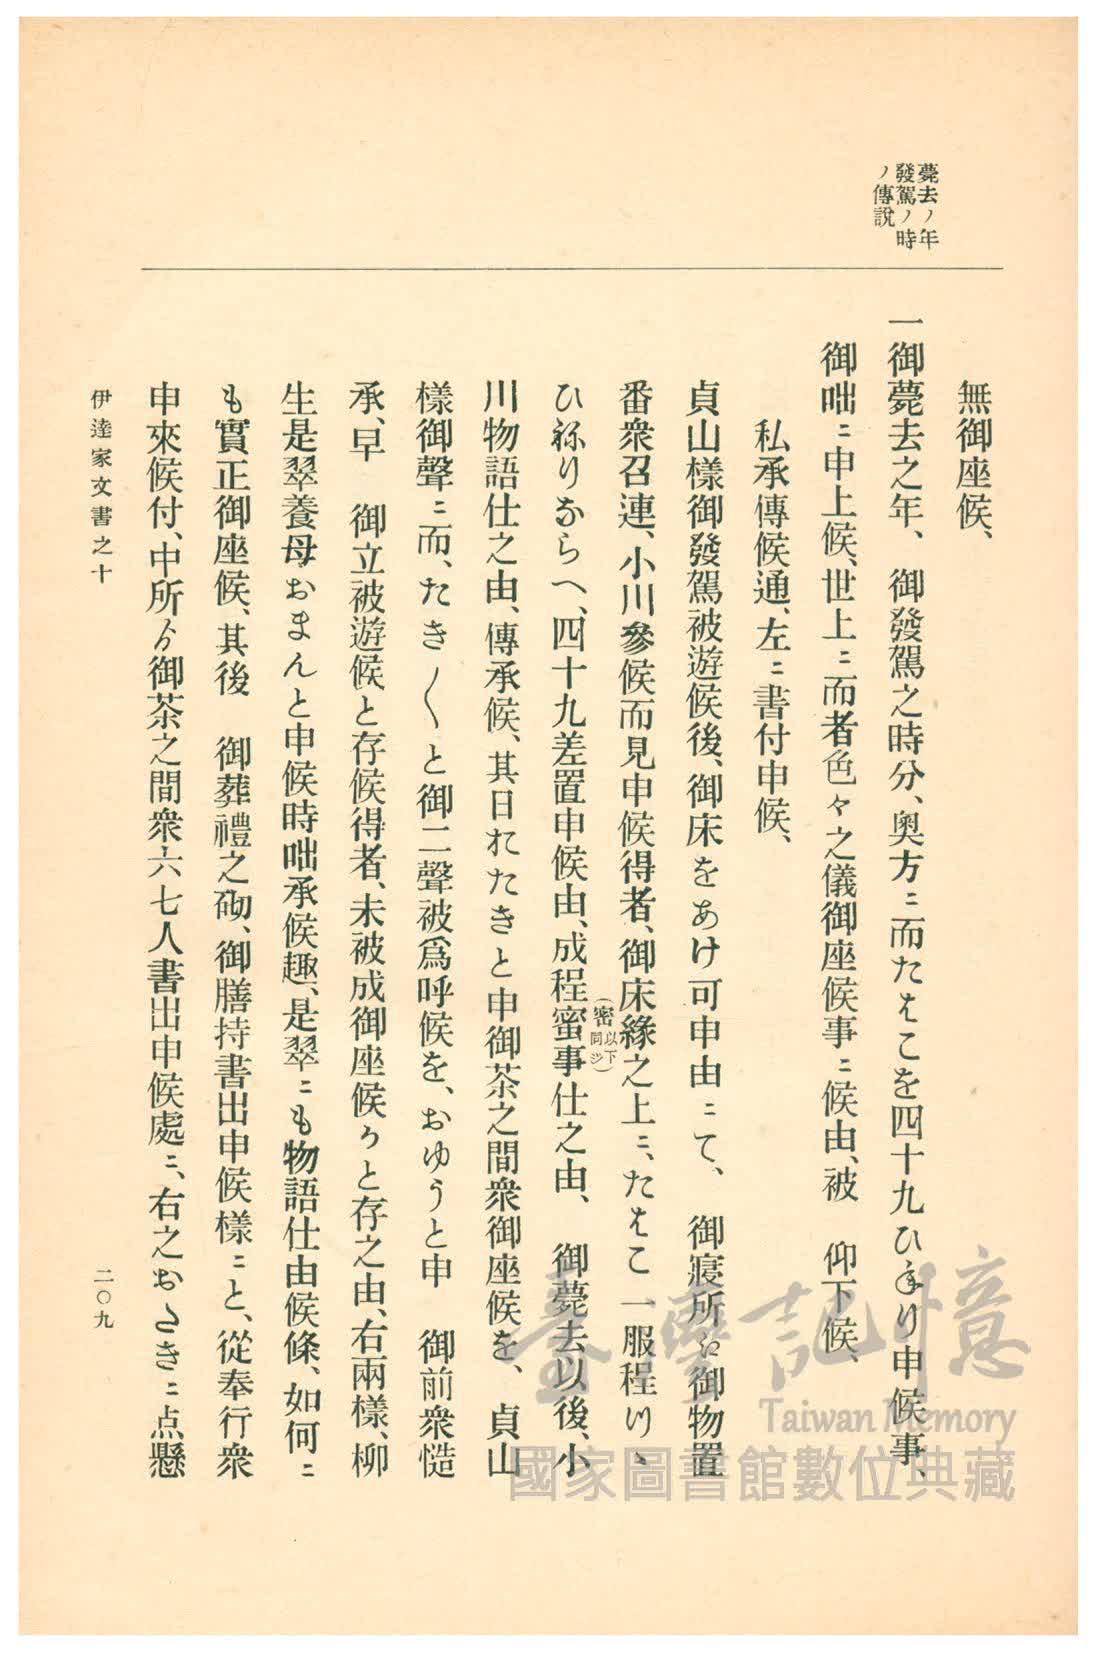 薨去ノ年
發駕ノ時
ノ傳說
無御座候、
一御薨去之年、　御發駕之時分、奥方ニ而たはこを四十九ひねり申候事、
御咄ニ申上候、世上ニ而者色々之儀御座候事ニ候由、被　仰下候、
私承傳候通、左ニ書付申候、
貞山樣御發駕被遊候後、御床をあけ可申由ニて、　御寢所江御物置
番衆召連、小川參候而見申候得者、御床緣之上ニ、たはこ一服程ツヽ
ひねりならへ、四十九差置申候由、成程蜜事仕之由、　御薨去以後、小
（密以下同ジ）
川物語仕之由、傳承候、其日れたきと申御茶之間衆御座候を、　貞山
樣御聲ニ而、たき〱と御二聲被爲呼候を、おゆうと申　御前衆慥
承、早　御立被遊候と存候得者、未被成御座候かと存之由、右兩樣、柳
生是翠養母おまんと申候時咄承候趣、是翠ニも物語仕由候條、如何ニ
も實正御座候、其後　御葬禮之砌、御膳持書出申候樣ニと、從奉行衆
申來候付、中所ゟ御茶之間衆六七人書出申候處ニ、右之おたきニ点懸
伊達家文書之十
二〇九
臺灣記憶
Taiwan Memory
國家圖書館數位典藏